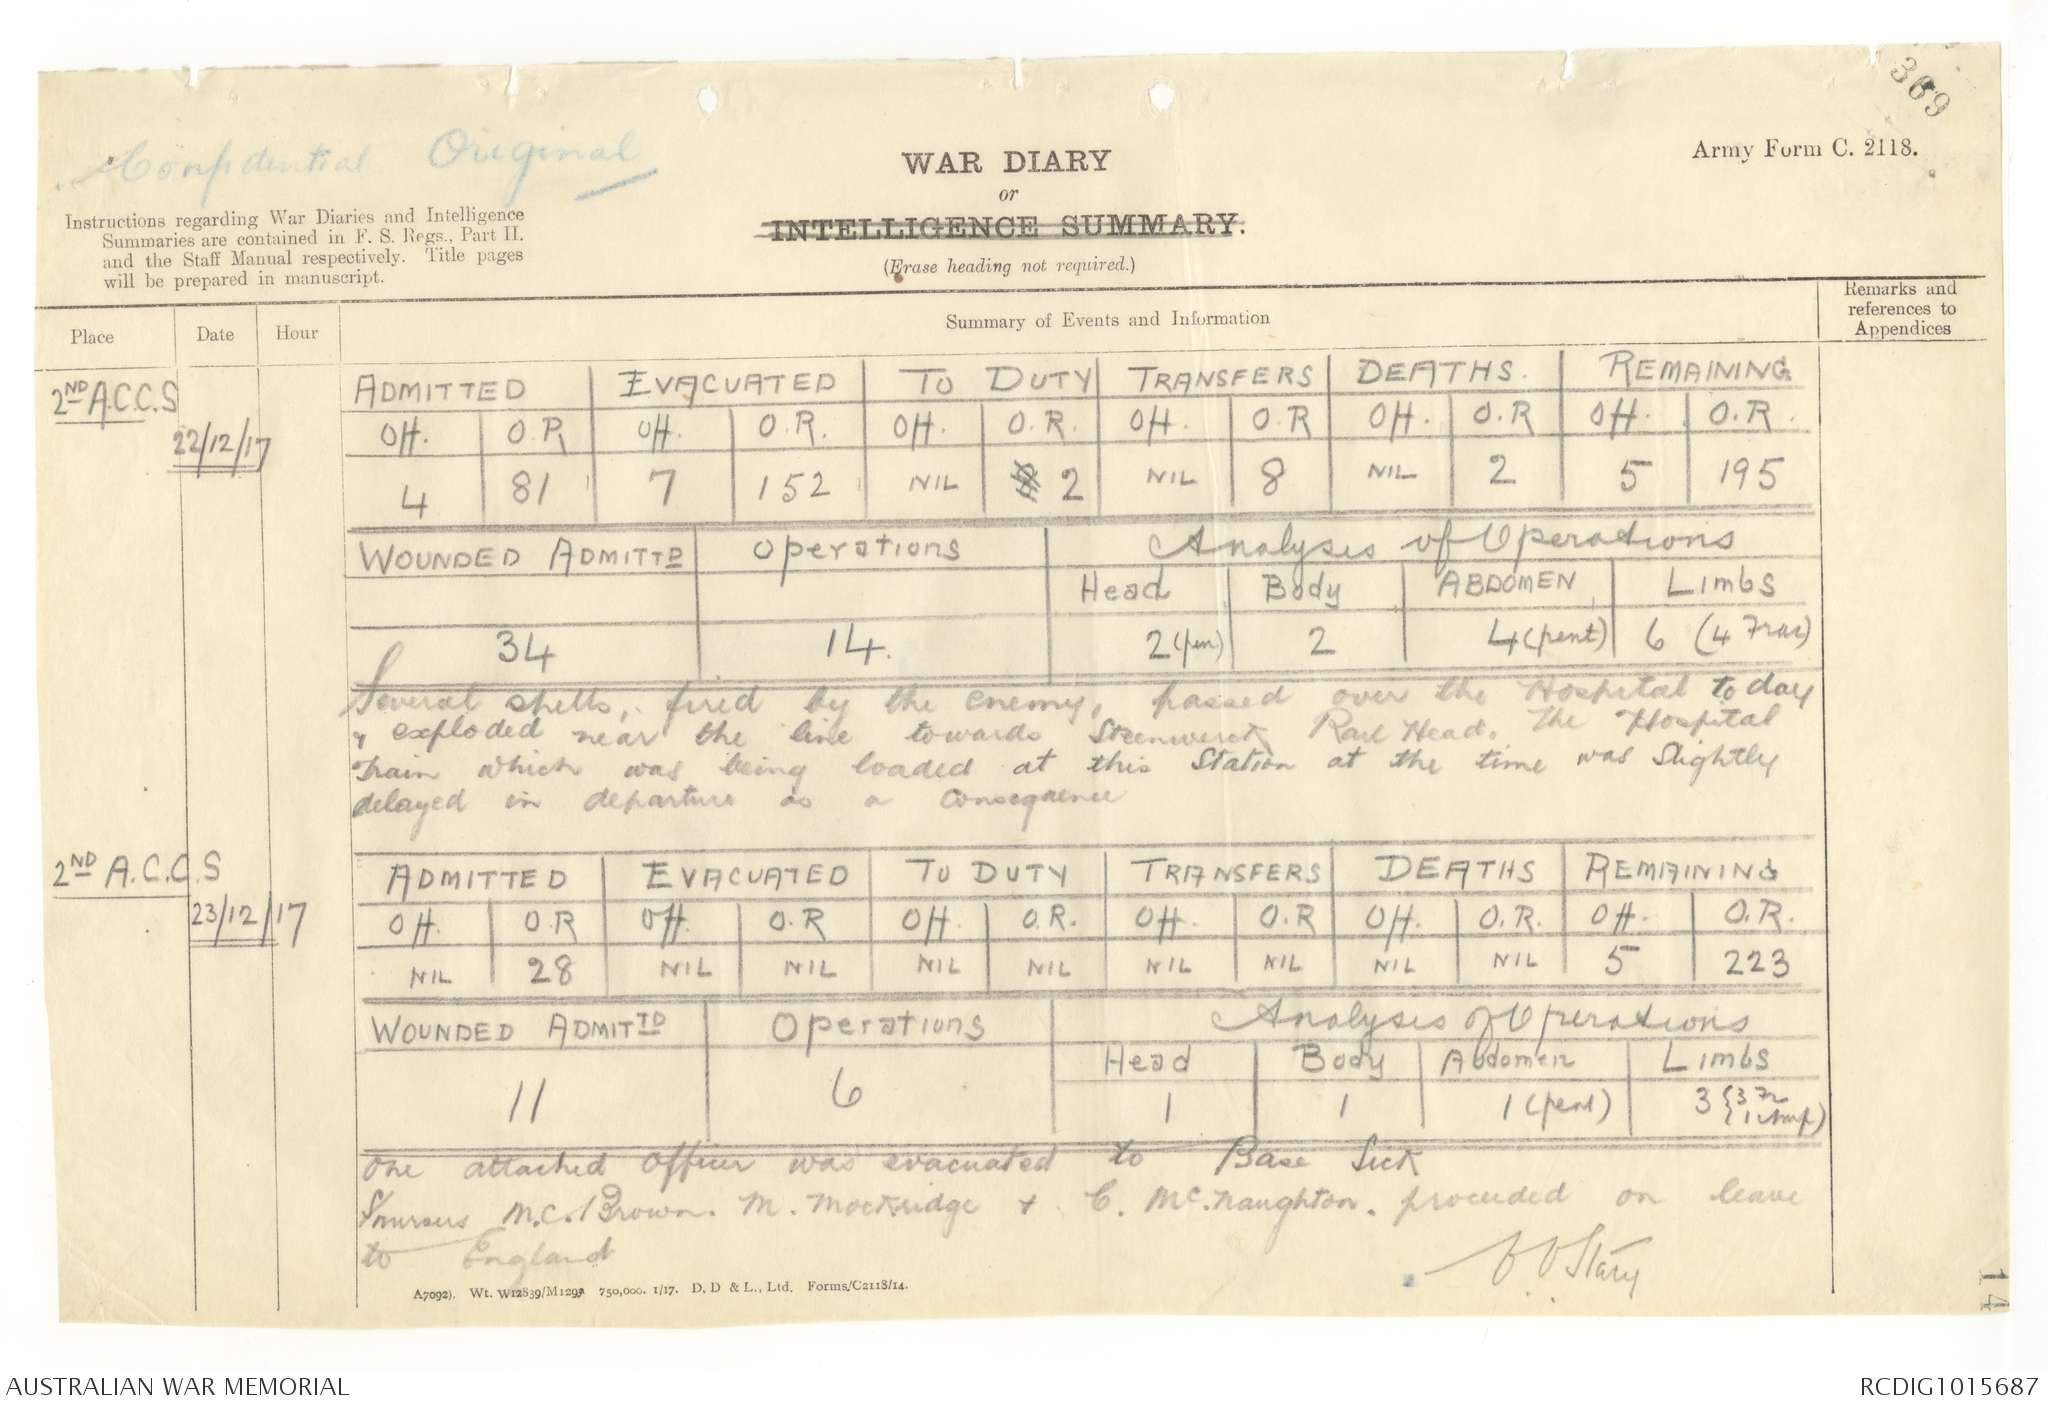 369
Confidential Original
Army Form C. 2118.
WAR DIARY
or
INTELLIGENCE SUMMARY.
(Erase heading not required.)
Instructions regarding War Diaries and Intelligence
Summaries are contained in F. S. Regs., Part II.
and the Staff Manual respectively. Title pages
will be prepared in manuscript.
Place Date Hour Summary of Events and Information Remarks and references to Appendices
2ND A.C.C.S
22/12/17
ADMITTED EVACUATED TO DUTY TRANSFERS DEATHS. REMAINING
Off. O.R Off. O.R. Off. O.R. Off. O.R Off. O.R Off. O.R.
4 81 7 152 NIL 2 NIL 8 NIL 2 5 195
WOUNDED ADMITTD Operations Analysis of Operations
Head Body ABDOMEN Limbs
34 14. 2 (pen) 2 4 (pent) 6 (4 Frac)
Several shells, fired by the enemy, passed over the Hospital today
& exploded near the line towards Steenwerck Rail Head. The Hospital
Train which was being loaded at this Station at the time was slightly
delayed in departure as a consequence
2ND A.C.C.S
23/12/17
ADMITTED EVACUATED TO DUTY TRANSFERS DEATHS REMAINING
Off. O.R Off. O.R Off. O.R. Off. O.R Off. O.R. Off. O.R.
NIL 28 NIL NIL NIL NIL NIL NIL NIL NIL 5 223
WOUNDED ADMITTD Operations Analysis of Operations
Head Body Abdomen Limbs
11 6 1 1 1 (pent) 3 {3 Fr
{1 amp)
One attached Officer was evacuated to Base Sick
S/nurses M.C. Brown. M. Mockridge & C. McNaughton. proceeded on leave
to England
A7092). Wt. W12839/M1293 750,000. 1/17. D. D & L., Ltd. Forms/C2118/14.
14
AUSTRALIAN WAR MEMORIAL
RCDIG1015687